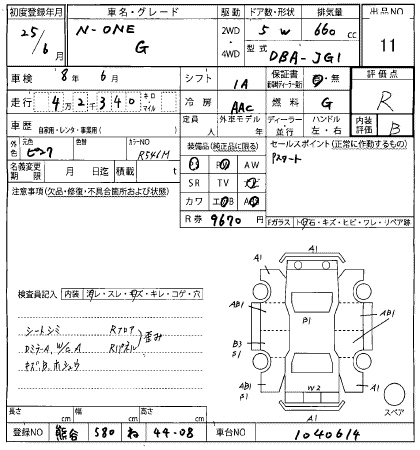 初度登録年月 車名・グレード 駆動 ドア数・形状 排気量 出品NO
25/6月 N-ONE G 2WD 4WD 5 W 660 cc 11
型式 DBA-JG1
車検 8年 6月 シフト IA 保証書 有・無 評価点
走行 42340 キロ・マイル 冷房 AAC 燃料 G R
車歴 自家用・レンタ・事業用( ) 定員 人 外車モデル 年 ディーラー・並行 ハンドル 左・右 内装評価 B
色 元色 ピンク 色替 カラーNO R541M 装備品(純正品に限る) セールスポイント(正常に作動するもの)
名義変更期限 月 日迄 積載 t PS PW AW Pスタート
注意事項(欠品・修復・不具合箇所および状態) SR TV ナビ
カワ エアB AB
R券 9670円 Fガラス トビ石・キズ・ヒビ・ワレ・リペア跡
検査員記入 内装 汚レ・スレ・キズ・キレ・コゲ・穴
シートシミ Rフロア
Rパネル 歪み
DミラーA, W/G A
キズ, B, ホシュウ
A1
A1
A1
AB1
AB1
B1
B3
S1
AB1
AB1
S1
W2
A1
A1
スペア
長さ cm 幅 cm 高さ cm
登録NO 熊谷 580 ね 44-08 車台NO 1040614